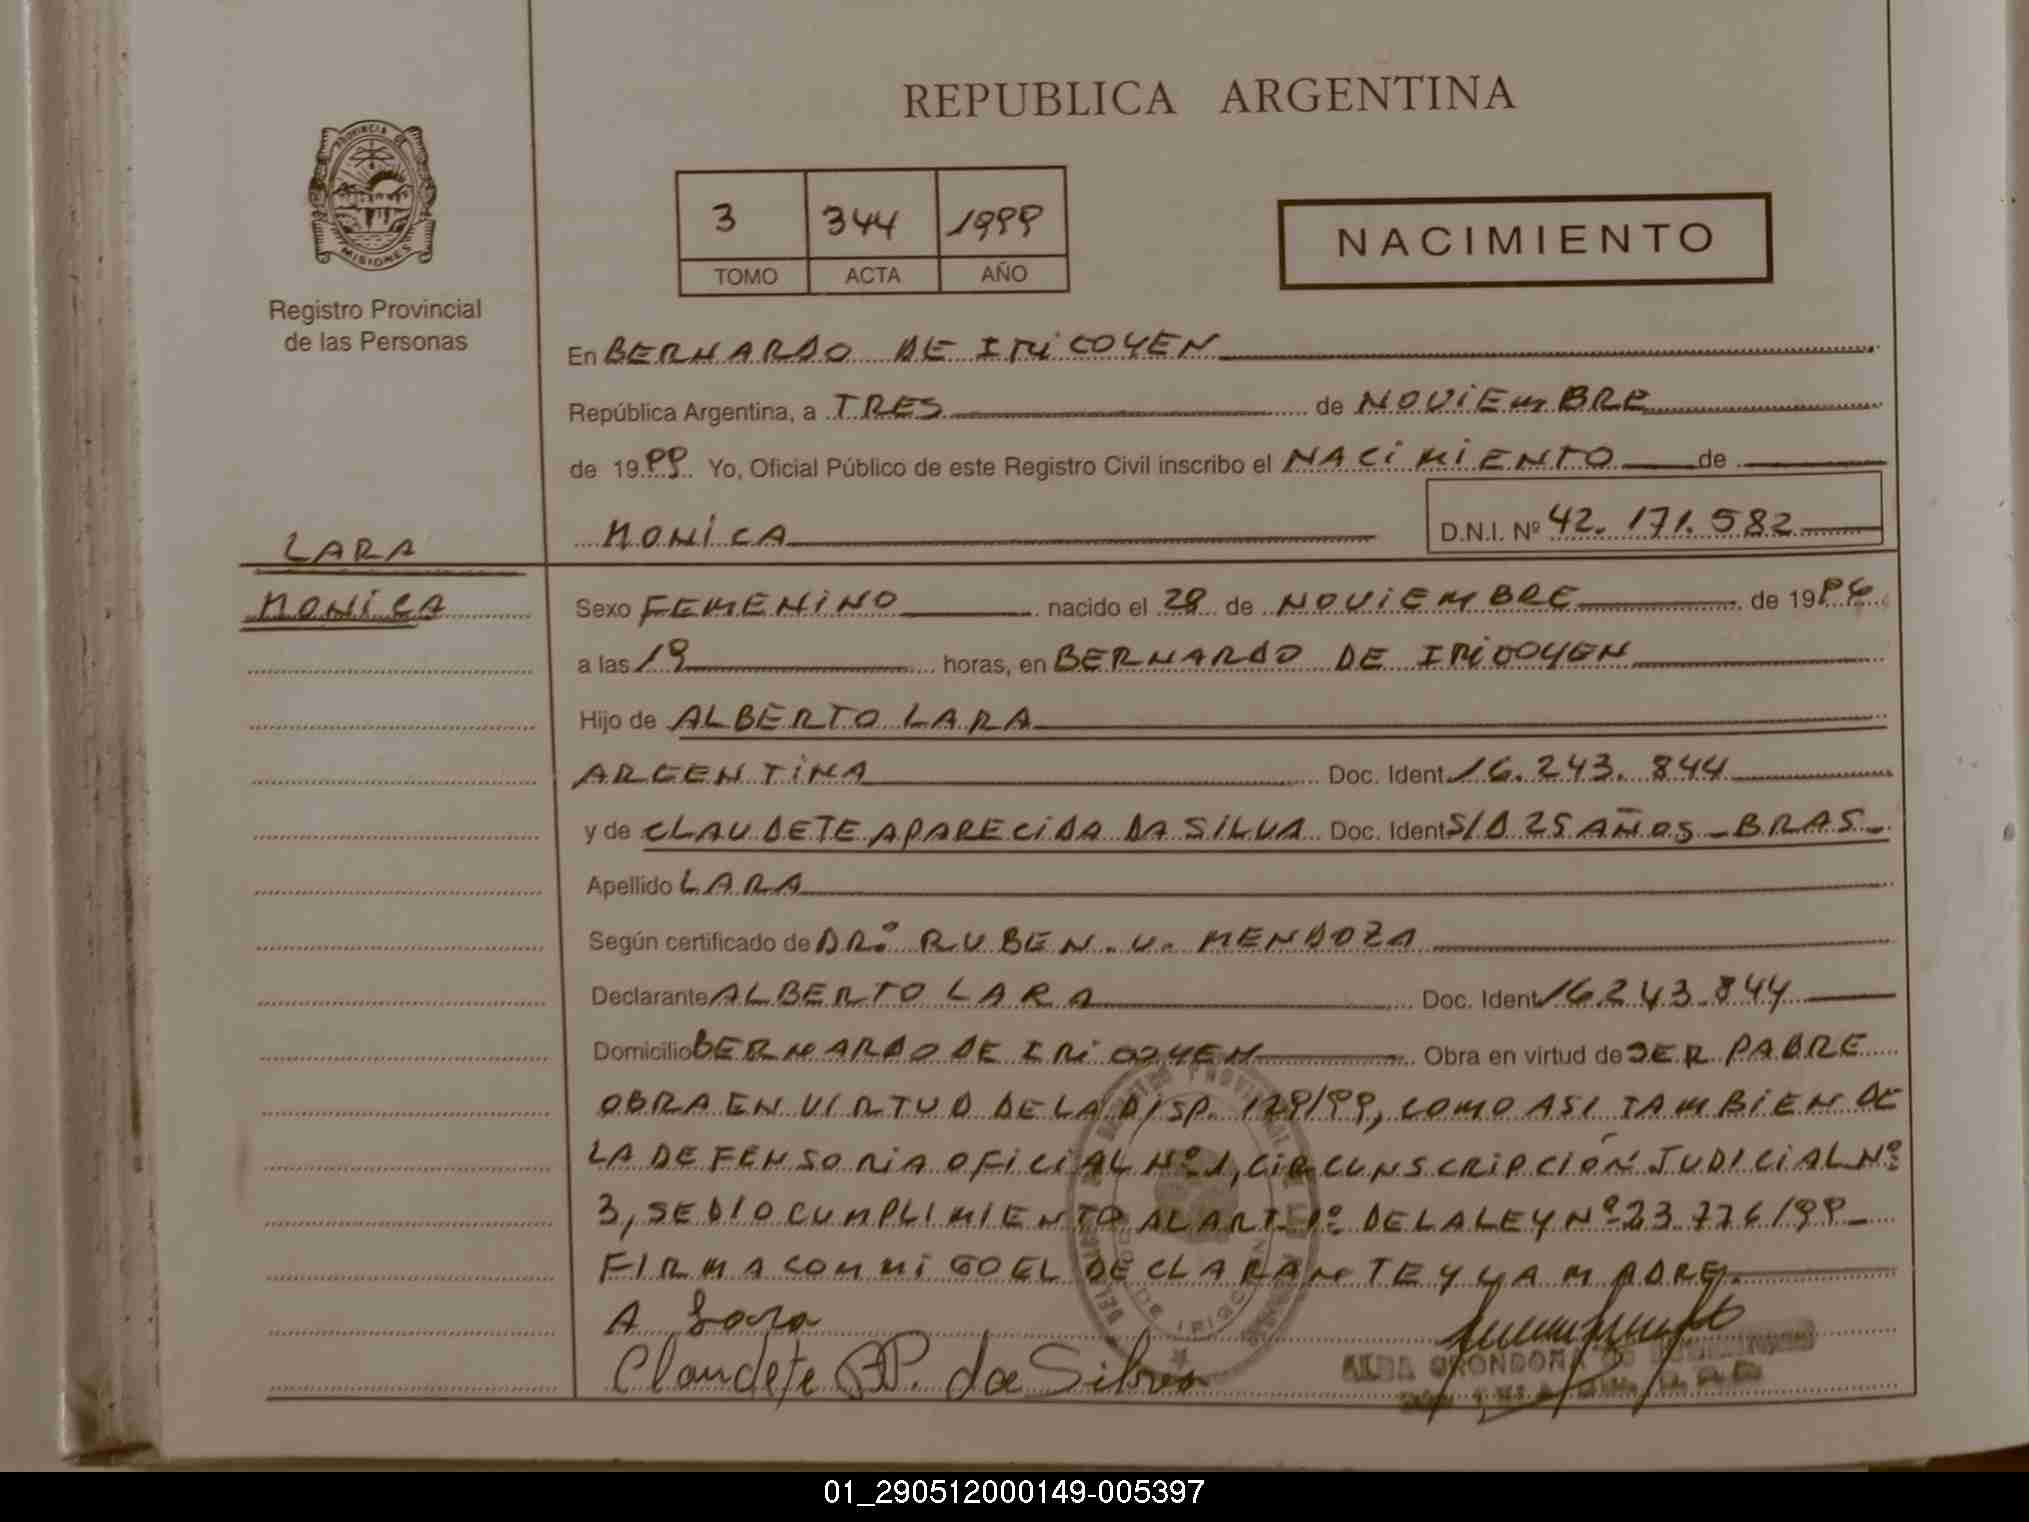 REPUBLICA ARGENTINA
PROVINCIA DE
MISIONES
Registro Provincial
de las Personas
3 344 1999
TOMO ACTA AÑO
NACIMIENTO
En BERNARDO DE IRIGOYEN
República Argentina, a TRES de NOVIEMBRE
de 1999 Yo, Oficial Público de este Registro Civil inscribo el NACIMIENTO de
MONICA D.N.I. Nº 42.171.582
LARA
MONICA
Sexo FEMENINO nacido el de NOVIEMBRE de 19
a las 19 horas, en BERNARDO DE IRIGOYEN
Hijo de ALBERTO LARA
ARGENTINA Doc. Ident. 16.243.844
y de CLAUDETE APARECIDA DA SILVA Doc. Ident. S/D 25 AÑOS - BRAS -
Apellido LARA
Según certificado de DR. RUBEN. V. MENDOZA
Declarante ALBERTO LARA Doc. Ident. 16.243.844
Domicilio BERNARDO DE IRIGOYEN Obra en virtud de SER PADRE
OBRA EN VIRTUD DE LA DISP. COMO ASI TAMBIEN DE
LA DEFENSORIA OFICIAL Nº 1, CIRCUNSCRIPCIÓN JUDICIAL Nº
3, SE DIO CUMPLIMIENTO AL ART. 1º DE LA LEY Nº 23.776/99 -
FIRMA CONMIGO EL DECLARANTE Y LA MADRE.
A Lara
Claudete AP. da Silva
ALBA GRONDONA DE
01_290512000149-005397